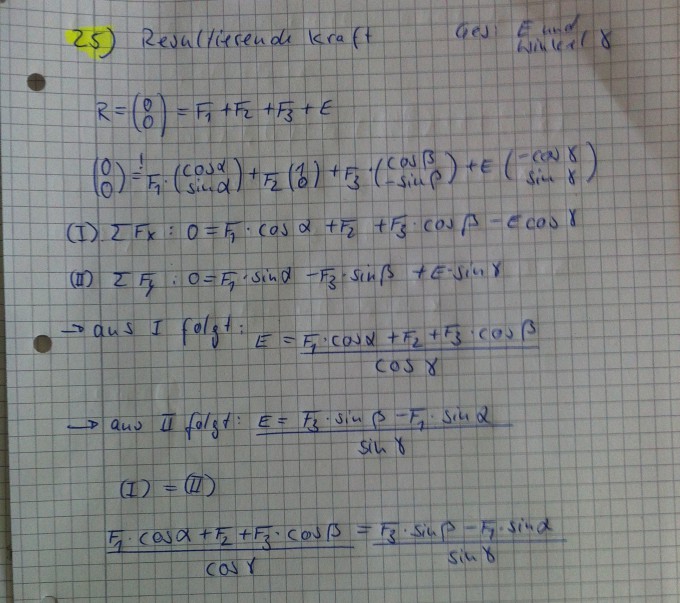 25) Resultierende Kraft Ges: E und Winkel γ
R = (0 0) = F₁ + F₂ + F₃ + E
(0 0) =! F₁·(cosα sinα) + F₂ (1 0) + F₃·(cosβ -sinβ) + E (-cosγ sinγ)
(I) Σ Fx : 0 = F₁·cosα + F₂ + F₃·cosβ - E cosγ
(II) Σ Fy : 0 = F₁·sinα - F₃·sinβ + E·sinγ
→ aus I folgt: E = F₁·cosα + F₂ + F₃·cosβ / cosγ
→ aus II folgt: E = F₃·sinβ - F₁·sinα / sinγ
(I) = (II)
F₁·cosα + F₂ + F₃·cosβ / cosγ = F₃·sinβ - F₁·sinα / sinγ